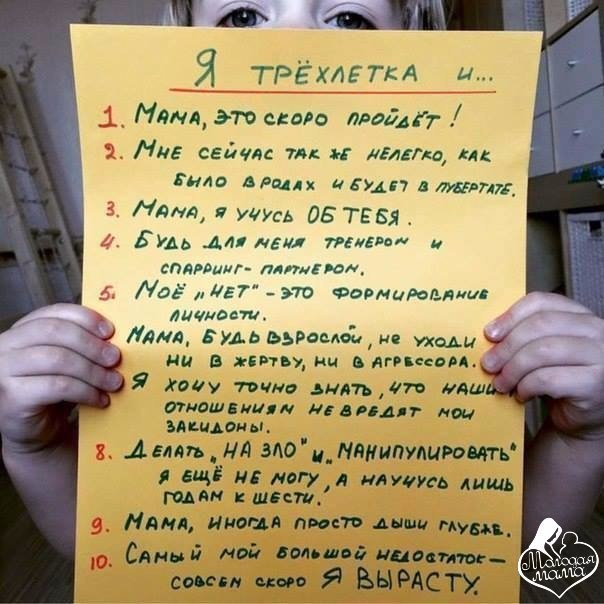 Я ТРЁХЛЕТКА И...
1. МАМА, ЭТО СКОРО ПРОЙДЁТ!
2. МНЕ СЕЙЧАС ТАК ЖЕ НЕЛЕГКО, КАК
БЫЛО В РОДАХ И БУДЕТ В ПУБЕРТАТЕ.
3. МАМА, Я УЧУСЬ ОБ ТЕБЯ.
4. БУДЬ ДЛЯ МЕНЯ ТРЕНЕРОМ И
СПАРРИНГ-ПАРТНЕРОМ.
5. МОЁ „НЕТ" - ЭТО ФОРМИРОВАНИЕ
ЛИЧНОСТИ.
МАМА, БУДЬ ВЗРОСЛОЙ, НЕ УХОДИ
НИ В ЖЕРТВУ, НИ В АГРЕССОРА.
Я ХОЧУ ТОЧНО ЗНАТЬ, ЧТО НАШИМ
ОТНОШЕНИЯМ НЕ ВРЕДЯТ МОИ
ЗАКИДОНЫ.
8. ДЕЛАТЬ „НА ЗЛО" И „МАНИПУЛИРОВАТЬ"
Я ЕЩЁ НЕ МОГУ, А НАУЧУСЬ ЛИШЬ
ГОДАМ К ШЕСТИ.
9. МАМА, ИНОГДА ПРОСТО ДЫШИ ГЛУБЖЕ.
10. САМЫЙ МОЙ БОЛЬШОЙ НЕДОСТАТОК —
СОВСЕМ СКОРО Я ВЫРАСТУ.
Молодая
мама